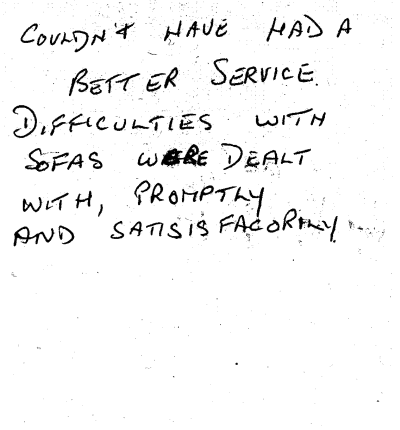 COULDN'T HAVE HAD A
BETTER SERVICE.
DIFFICULTIES WITH
SOFAS WERE DEALT
WITH, PROMPTLY
AND SATISISFACORILY.